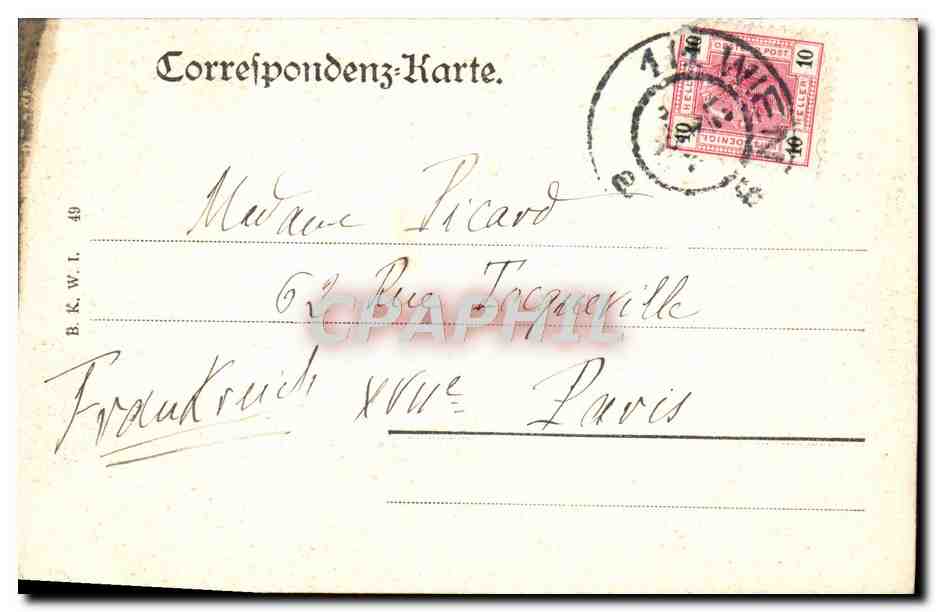 Correspondenz-Karte.
1/1 WIEN
10 10
10 10
HELLER HELLER
B. K. W. I. 49
Madame Picard
62 Rue Tocqueville
CPAPHIL
Frankreich XVIIe Paris